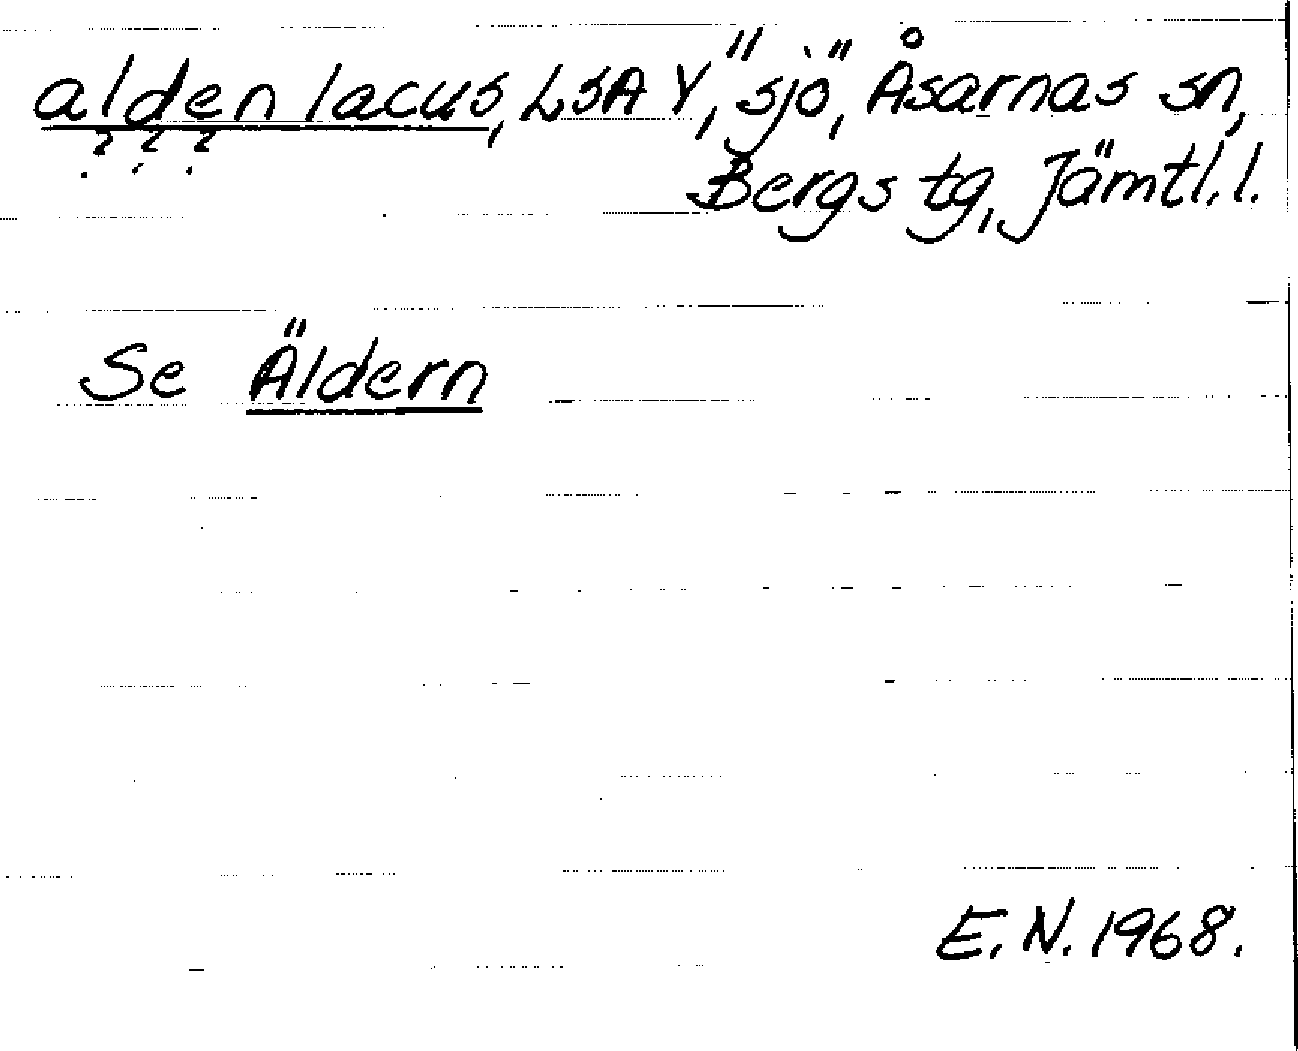 alden lacus, LSA Y, "sjö", Åsarnas sn,
? ? ?
Bergs tg, Jämtl. l.
Se Äldern
E. N. 1968.